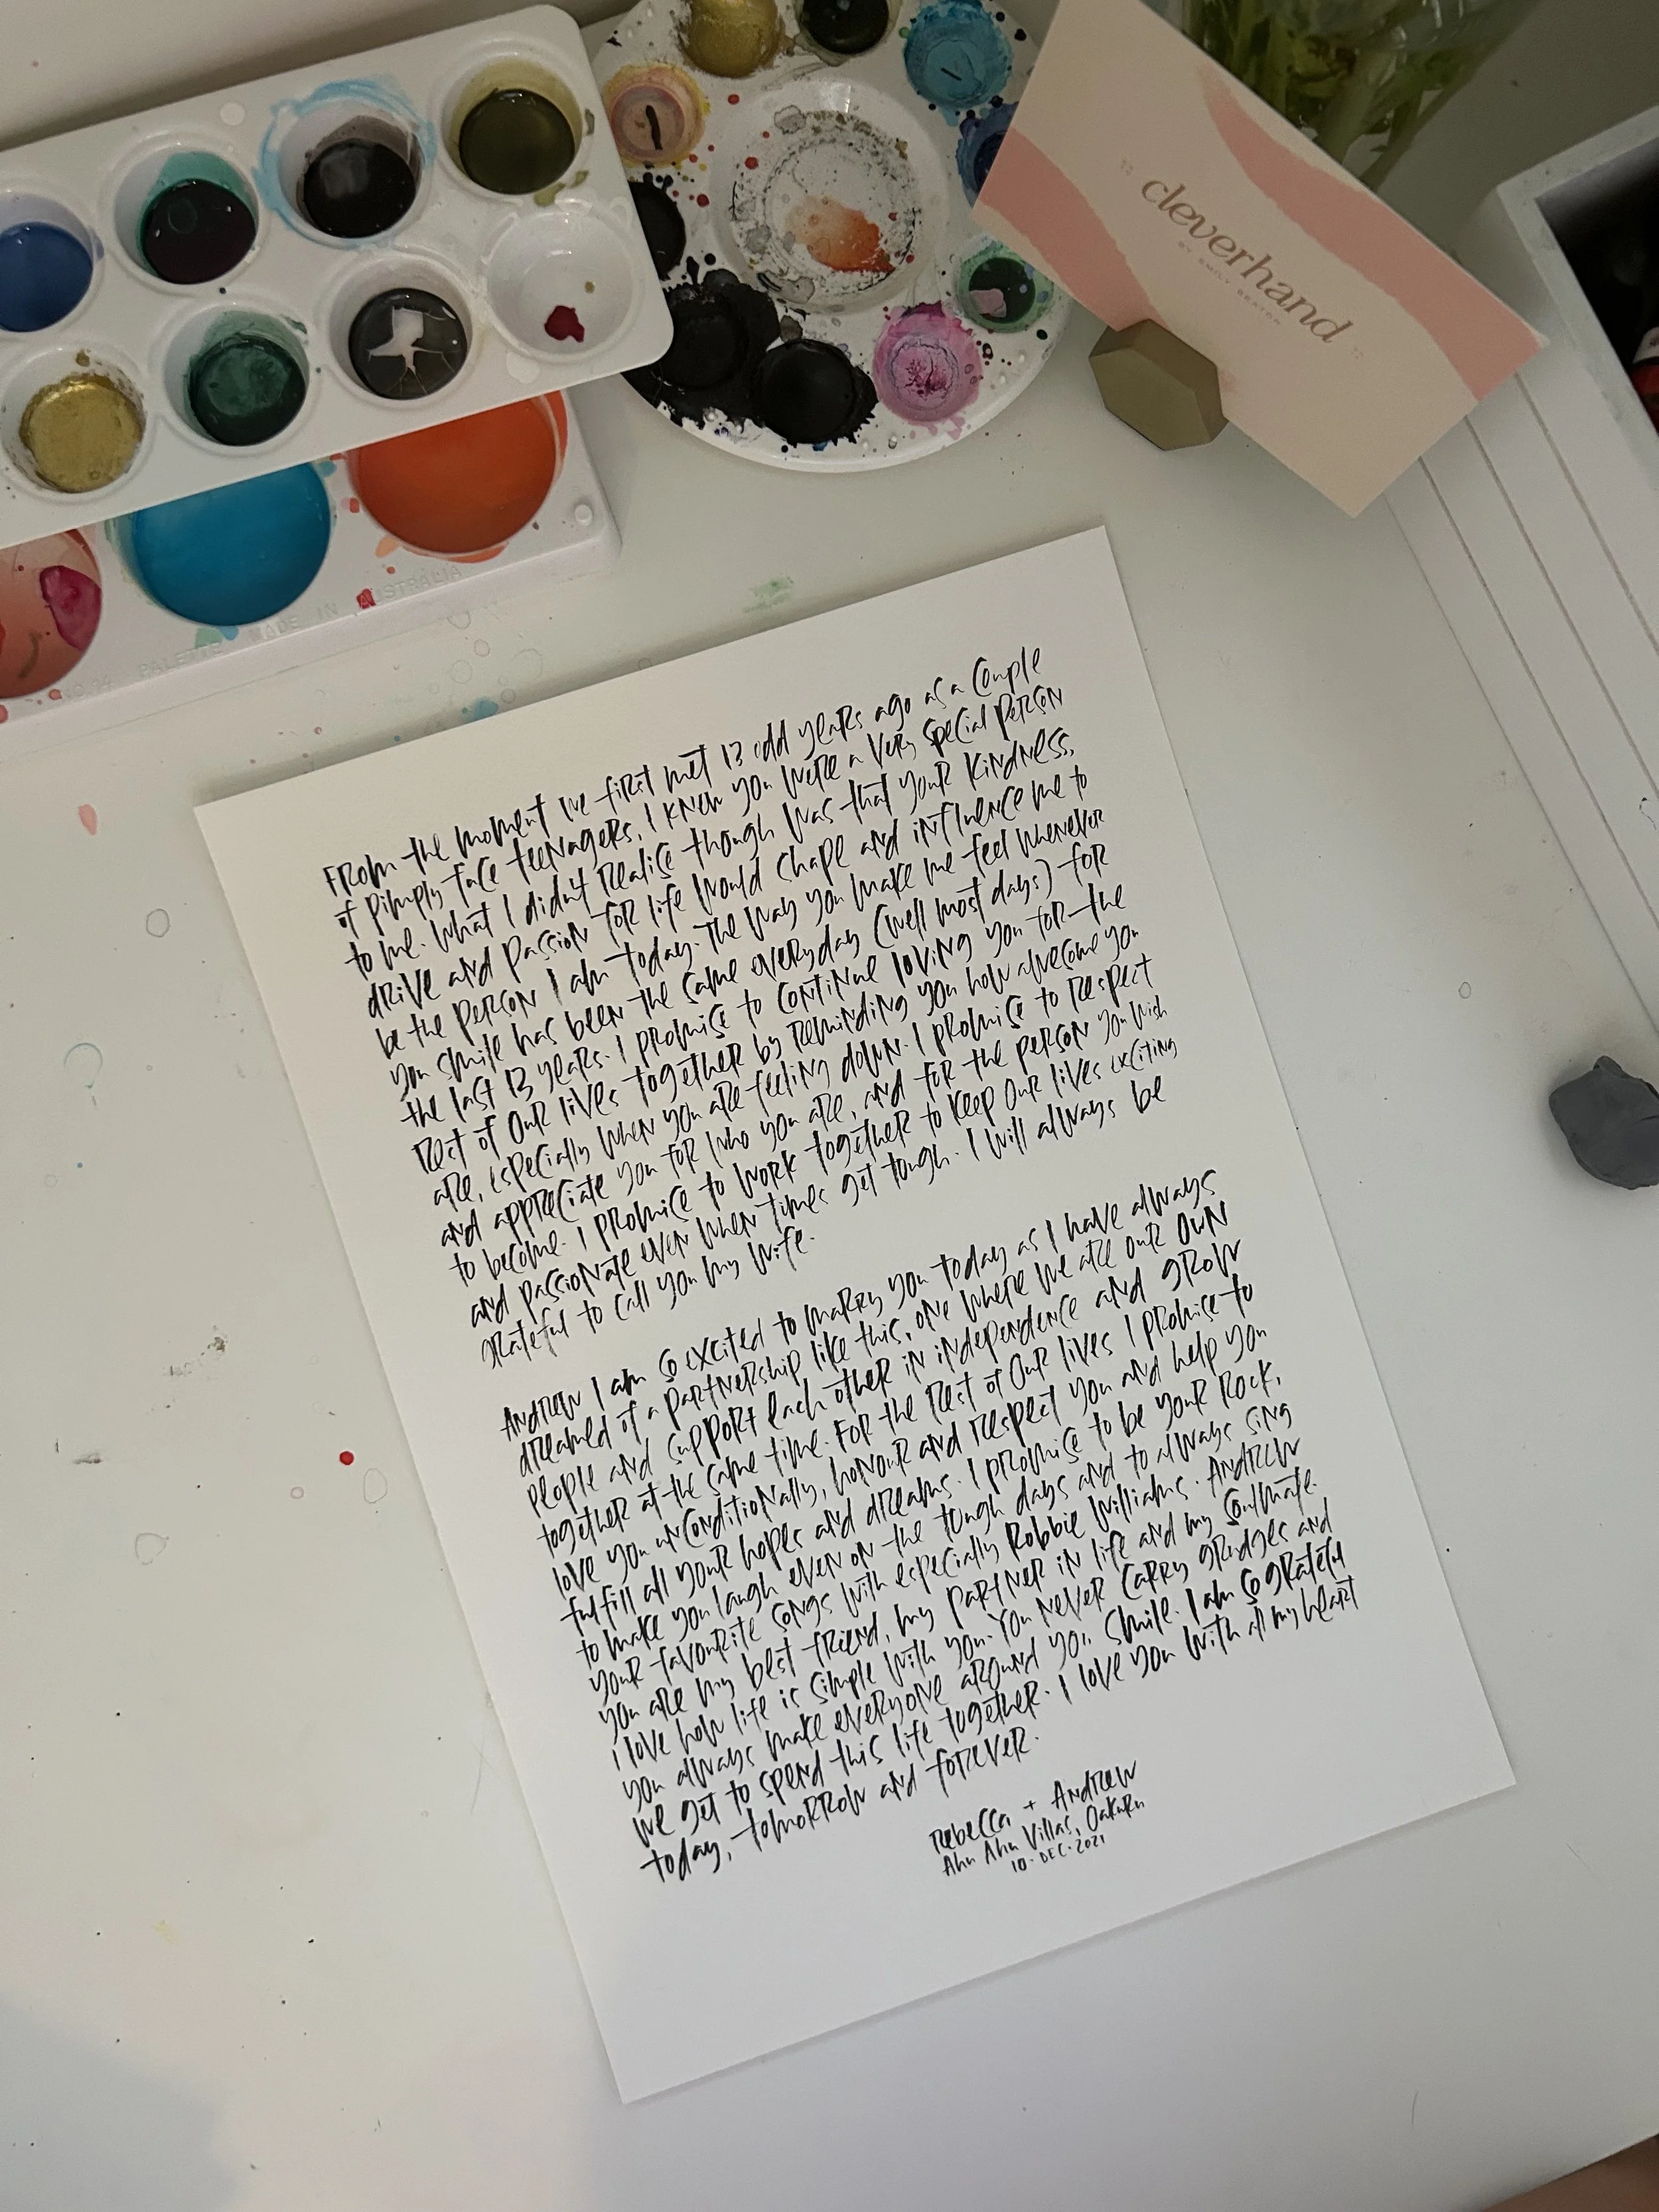 cleverhand
BY EMILY BEATON
PALETTE MADE IN AUSTRALIA
FROM the moment we first met 13 odd years ago as a couple
of pimply face teenagers, I knew you were a very special person
to me. What I didn't realise though was that your kindness,
drive and passion for life would shape and influence me to
be the person I am today. The way you make me feel whenever
you smile has been the same everyday (well most days) for
the last 13 years. I promise to continue loving you for the
rest of our lives together by reminding you how awesome you
are, especially when you are feeling down. I promise to respect
and appreciate you for who you are, and for the person you wish
to become. I promise to work together to keep our lives exciting
and passionate even when times get tough. I will always be
grateful to call you my wife.
Andrew I am so excited to marry you today as I have always
dreamed of a partnership like this, one where we are our own
people and support each other in independence and grow
together at the same time. For the rest of our lives I promise to
love you unconditionally, honour and respect you and help you
fulfill all your hopes and dreams. I promise to be your rock,
to make you laugh even on the tough days and to always sing
your favourite songs with especially Robbie Williams. Andrew
you are my best friend, my partner in life and my soulmate.
I love how life is simple with you. You never carry grudges and
you always make everyone around you smile. I am so grateful
we get to spend this life together. I love you with all my heart
today, tomorrow and forever.
Rebecca + Andrew
Ahu Ahu Villas, Oakura
10. DEC. 2021